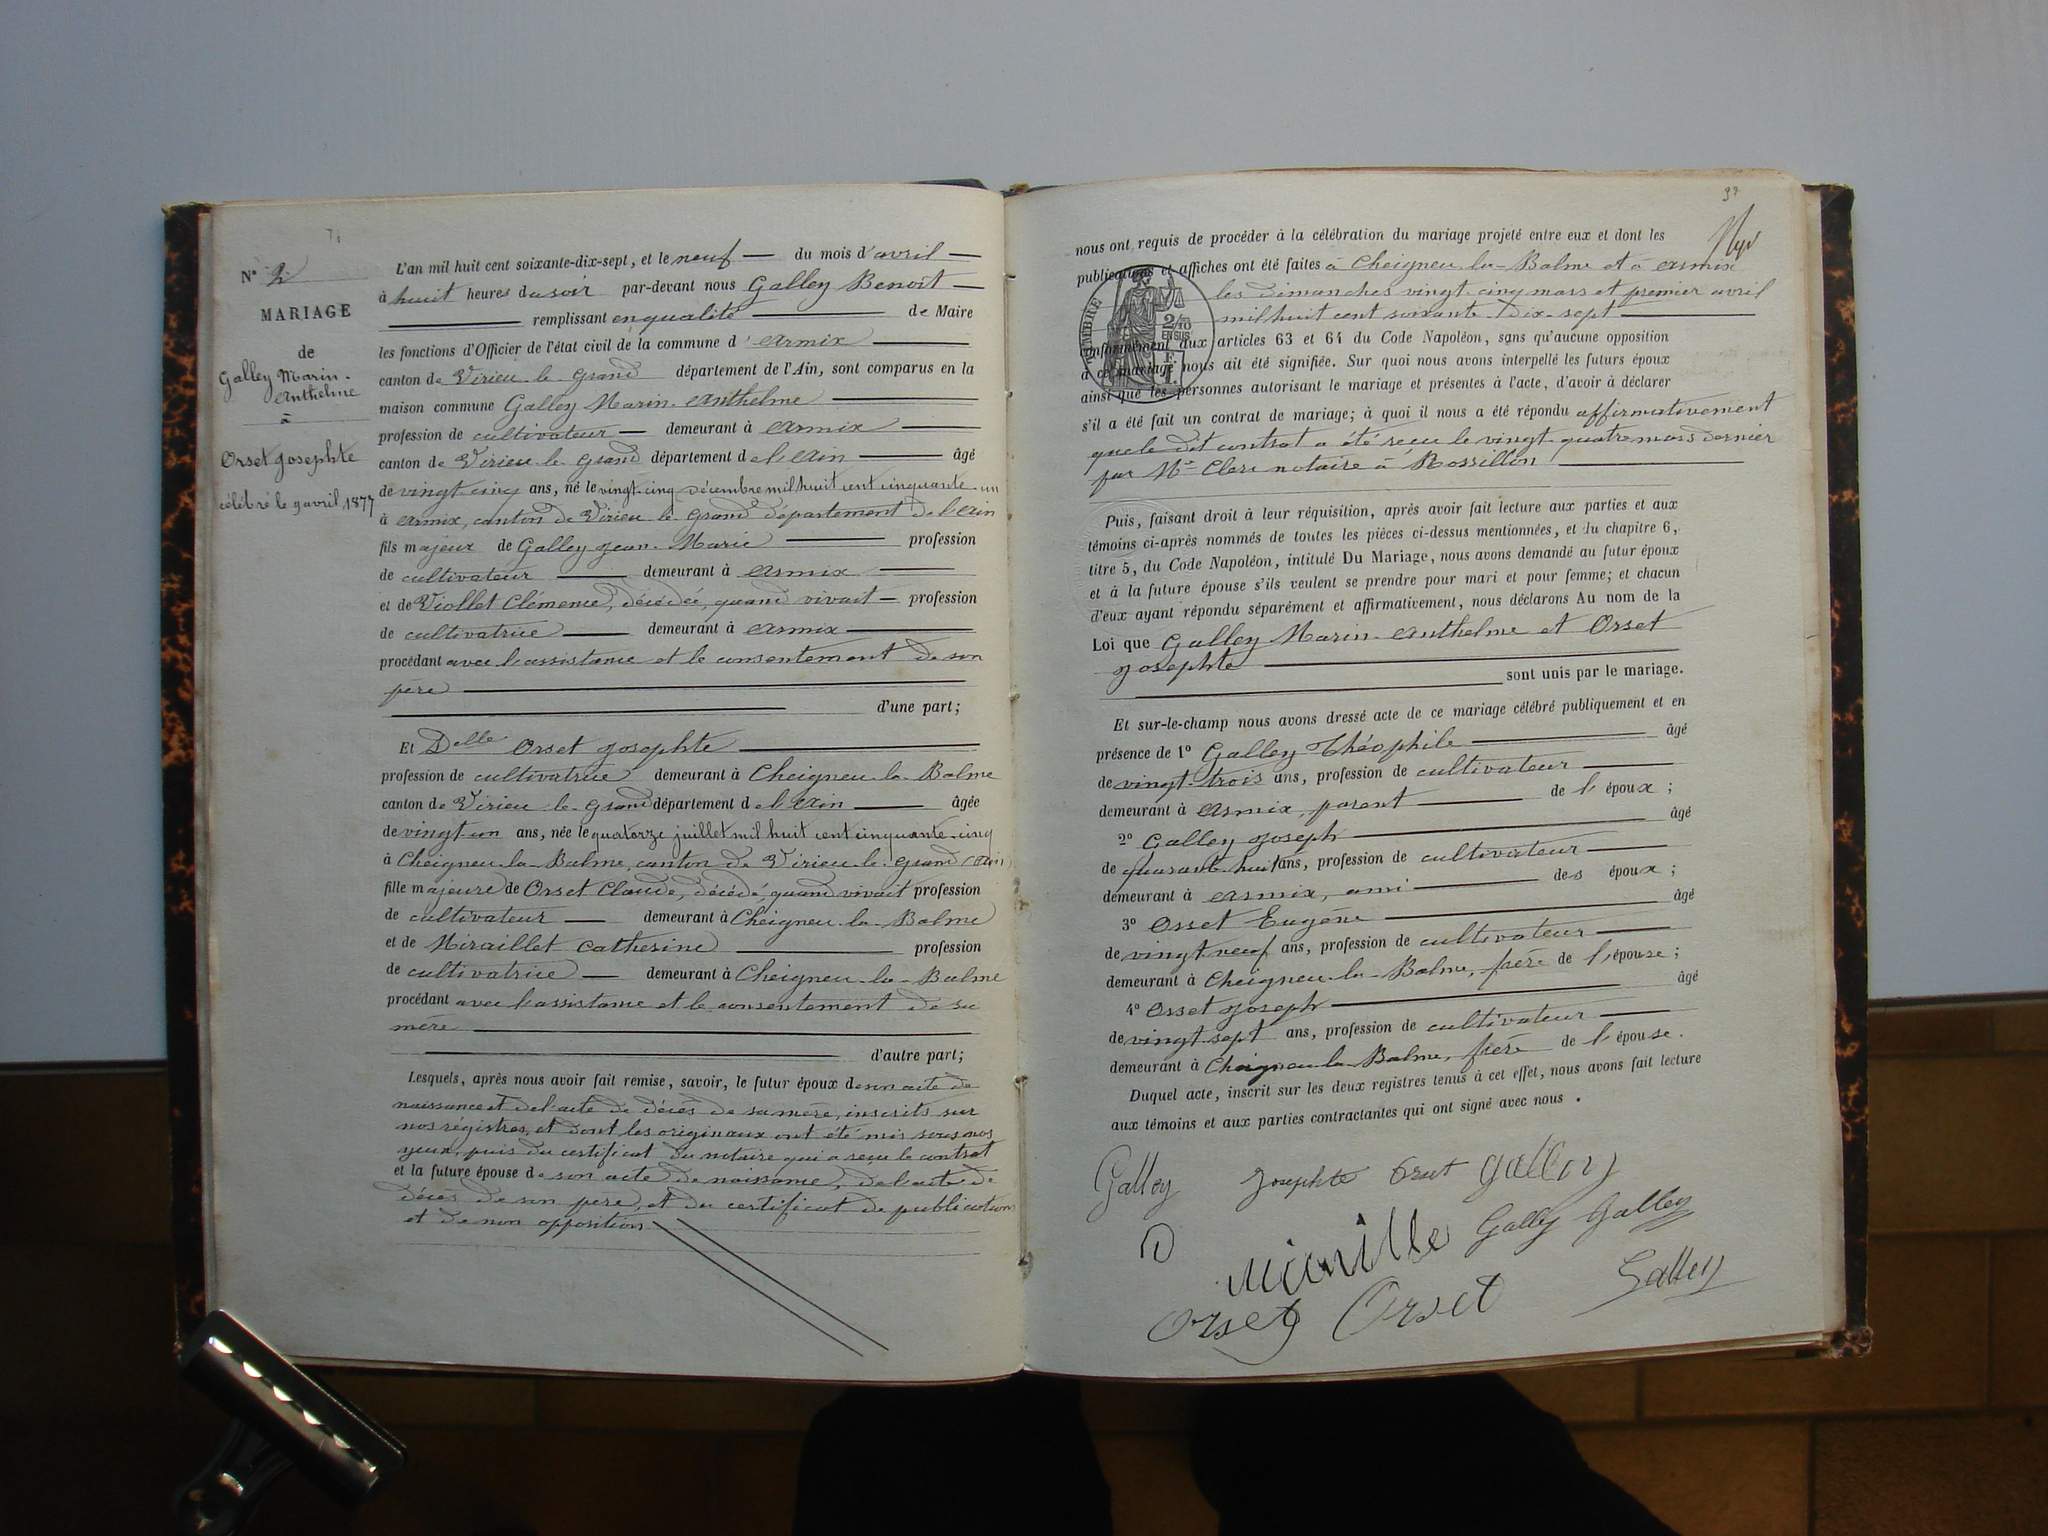 N° 2
MARIAGE
de
Galley Marin-
Anthelme
à
Orset Josephte
célébré le 9 avril 1877
L'an mil huit cent soixante-dix-sept, et le neuf du mois d'avril
à huit heures du soir par-devant nous Galley Benoît
remplissant en qualité de Maire
les fonctions d'Officier de l'état civil de la commune d'Armix
canton de Virieu-le-Grand département de l'Ain, sont comparus en la
maison commune Galley Marin-Anthelme
profession de cultivateur demeurant à Armix
canton de Virieu-le-Grand département de l'Ain âgé
de vingt-cinq ans, né le vingt-cinq décembre mil huit cent cinquante-un
à Armix, canton de Virieu-le-Grand département de l'Ain
fils majeur de Galley Jean-Marie profession
de cultivateur demeurant à Armix
et de Viollet Clémence, décédée, quand vivait profession
de cultivatrice demeurant à Armix
procédant avec l'assistance et le consentement de son
père
d'une part;
Et Delle Orset Josephte
profession de cultivatrice demeurant à Cheigneu-la-Balme
canton de Virieu-le-Grand département de l'Ain âgée
de vingt-un ans, née le quatorze juillet mil huit cent cinquante-cinq
à Cheigneu-la-Balme, canton de Virieu-le-Grand (Ain)
fille majeure de Orset Claude, décédé, quand vivait profession
de cultivateur demeurant à Cheigneu-la-Balme
et de Miraillet Catherine profession
de cultivatrice demeurant à Cheigneu-la-Balme
procédant avec l'assistance et le consentement de sa
mère
d'autre part;
Lesquels, après nous avoir fait remise, savoir, le futur époux de son acte de
naissance et de l'acte de décès de sa mère, inscrits sur
nos régistres, et dont les originaux ont été mis sous nos
yeux, puis du certificat du notaire qui a reçu le contrat
et la future épouse de son acte de naissance, de l'acte de
décès de son père, et du certificat de publication
et de non opposition
37
nous ont requis de procéder à la célébration du mariage projeté entre eux et dont les
publications et affiches ont été faites à Cheigneu-la-Balme et à Armix
les dimanches vingt-cinq mars et premier avril
mil huit cent soixante-dix-sept
TIMBRE
2/10
EN SUS
conformément aux articles 63 et 64 du Code Napoléon, sans qu'aucune opposition
à ce mariage nous ait été signifiée. Sur quoi nous avons interpellé les futurs époux
ainsi que les personnes autorisant le mariage et présentes à l'acte, d'avoir à déclarer
s'il a été fait un contrat de mariage; à quoi il nous a été répondu affirmativement
que le dit contrat a été reçu le vingt-quatre mars dernier
par Me Clerc notaire à Rossillon
Puis, faisant droit à leur réquisition, après avoir fait lecture aux parties et aux
témoins ci-après nommés de toutes les pièces ci-dessus mentionnées, et du chapitre 6,
titre 5, du Code Napoléon, intitulé Du Mariage, nous avons demandé au futur époux
et à la future épouse s'ils veulent se prendre pour mari et pour femme; et chacun
d'eux ayant répondu séparément et affirmativement, nous déclarons Au nom de la
Loi que Galley Marin-Anthelme et Orset
Josephte
sont unis par le mariage.
Et sur-le-champ nous avons dressé acte de ce mariage célébré publiquement et en
présence de 1° Galley Théophile âgé
de vingt-trois ans, profession de cultivateur
demeurant à Armix, parent de l'époux;
2° Galley Joseph âgé
de quarante-huit ans, profession de cultivateur
demeurant à Armix, ami des époux;
3° Orset Eugène âgé
de vingt-neuf ans, profession de cultivateur
demeurant à Cheigneu-la-Balme, frère de l'épouse;
4° Orset Joseph âgé
de vingt-sept ans, profession de cultivateur
demeurant à Cheigneu-la-Balme, frère de l'épouse.
Duquel acte, inscrit sur les deux registres tenus à cet effet, nous avons fait lecture
aux témoins et aux parties contractantes qui ont signé avec nous.
Galley Josephte Orset Galley
Galley Galley
Orset Orset Galley